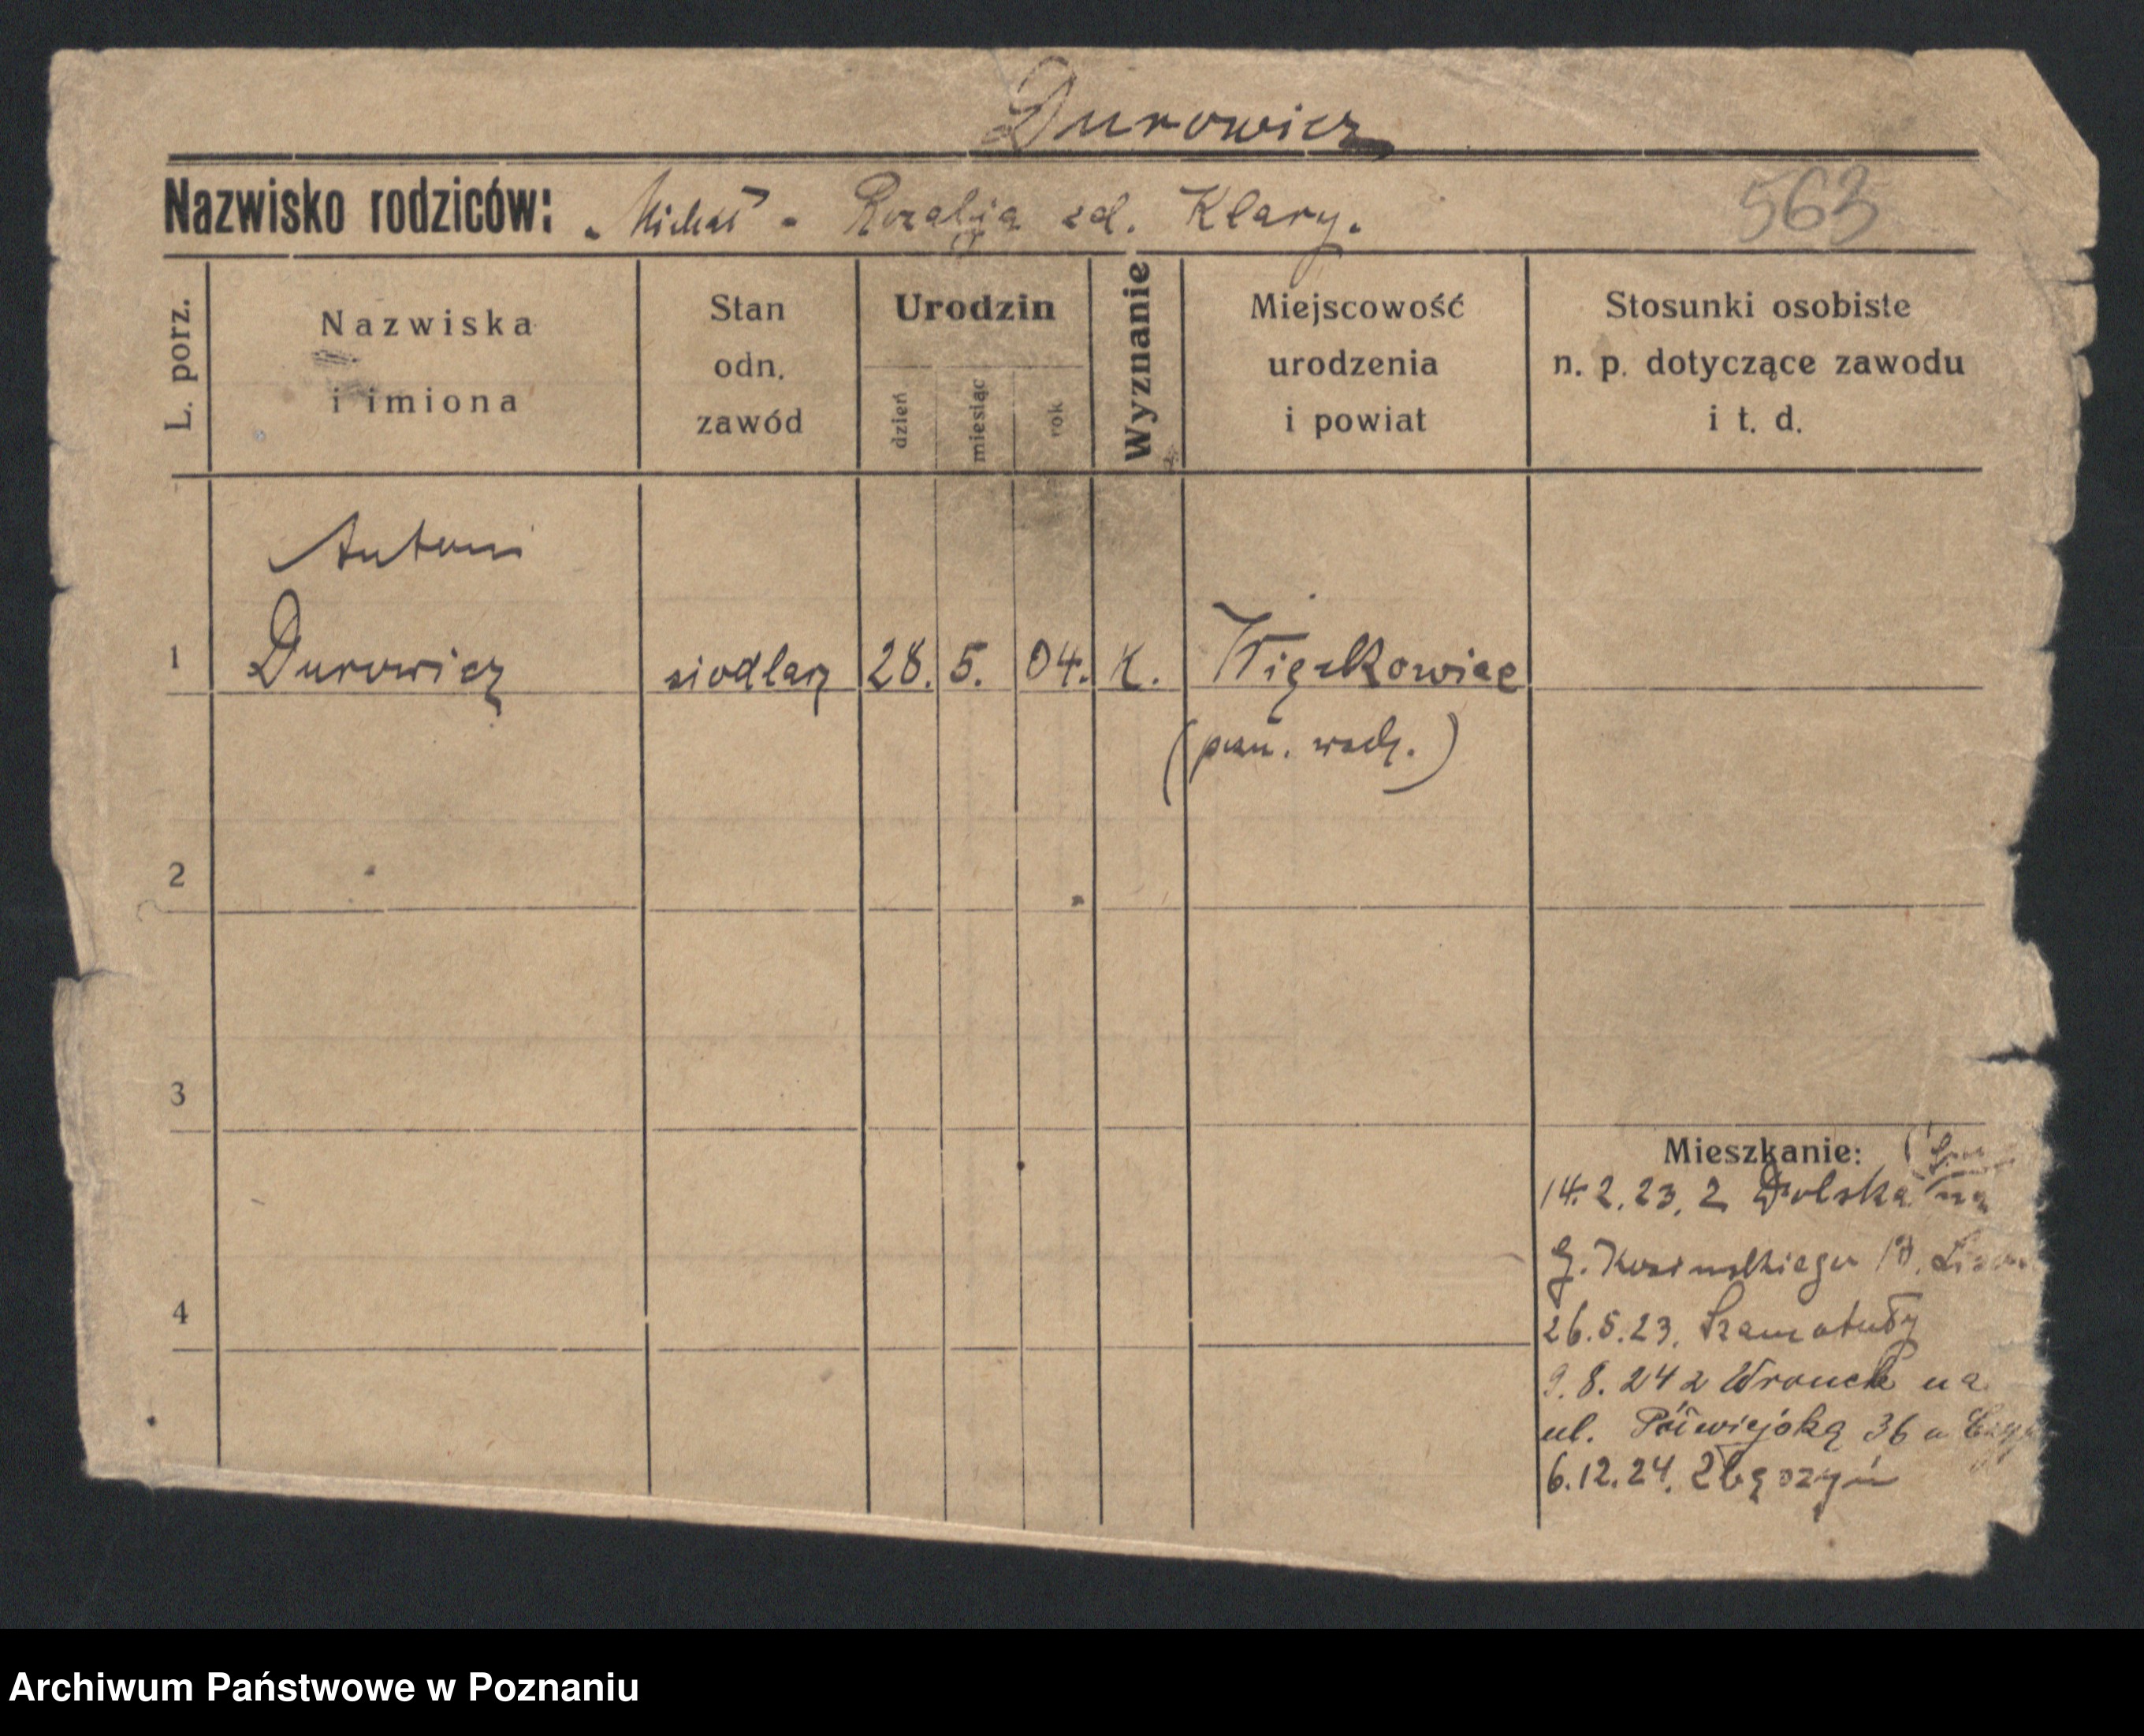 Durowicz
Nazwisko rodziców: Michał - Rozalja zd. Klary. 563
L. porz.
Nazwiska
i imiona
Stan
odn.
zawód
Urodzin
dzień
miesiąc
rok
Wyznanie
Miejscowość
urodzenia
i powiat
Stosunki osobiste
n. p. dotyczące zawodu
i t. d.
Antoni
1 Durowicz siodlarz 28. 5. 04. K.
(pozn. wsch.)
2
3
Mieszkanie:
14.2.23. z Dolska na
G. 13.
4
26.5.23. Szamotuły
9.8.24 z Wronek na
ul. Półwiejską 36 u
6.12.24. Zbąszyń
Archiwum Państwowe w Poznaniu